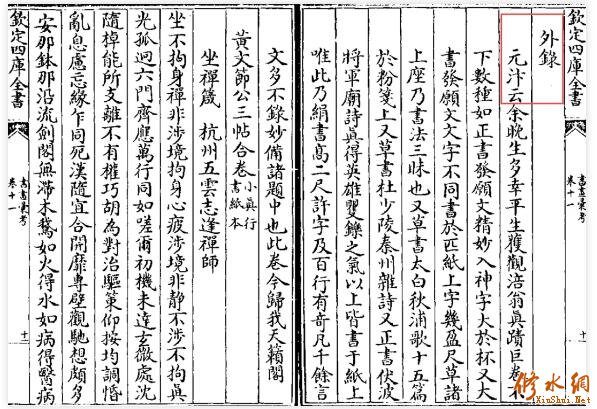 欽定四庫全書
書畫彙考
卷十一
十一
外錄
元汴云余晚生多幸平生獲觀涪翁真蹟巨卷不
下數種如正書發願文精妙入神字大於杯又大
書發願文文字不同書於匹紙上字幾盈尺草諸
上座乃書法三昧也又草書太白秋浦歌十五篇
於粉箋上又草書杜少陵秦州雜詩又正書伏波
將軍廟詩真得英雄矍鑠之氣以上皆書于紙上
唯此乃絹書高二尺許字及百行有奇凡千餘言
文多不錄妙備諸題中也此卷今歸我天籟閣
黃文節公三帖合卷小真行書紙本
坐禪箴 杭州五雲志逢禪師
坐不拘身禪非涉境拘身心疲涉境非靜不涉不拘真
光孤迥六門齊應萬行同如嗟爾初機未達玄微處沈
隨掉能所支離不有權巧胡為對治驅策仰按均調惛
亂息慮忘緣乍同死漢隨宜合開靡專壁觀馳想頗多
安那鉢那沿流劍閣無滯木鵝如火得水如病得醫病
欽定四庫全書
書畫彙考
卷十一
十二
修水網
iXiuShui.Net